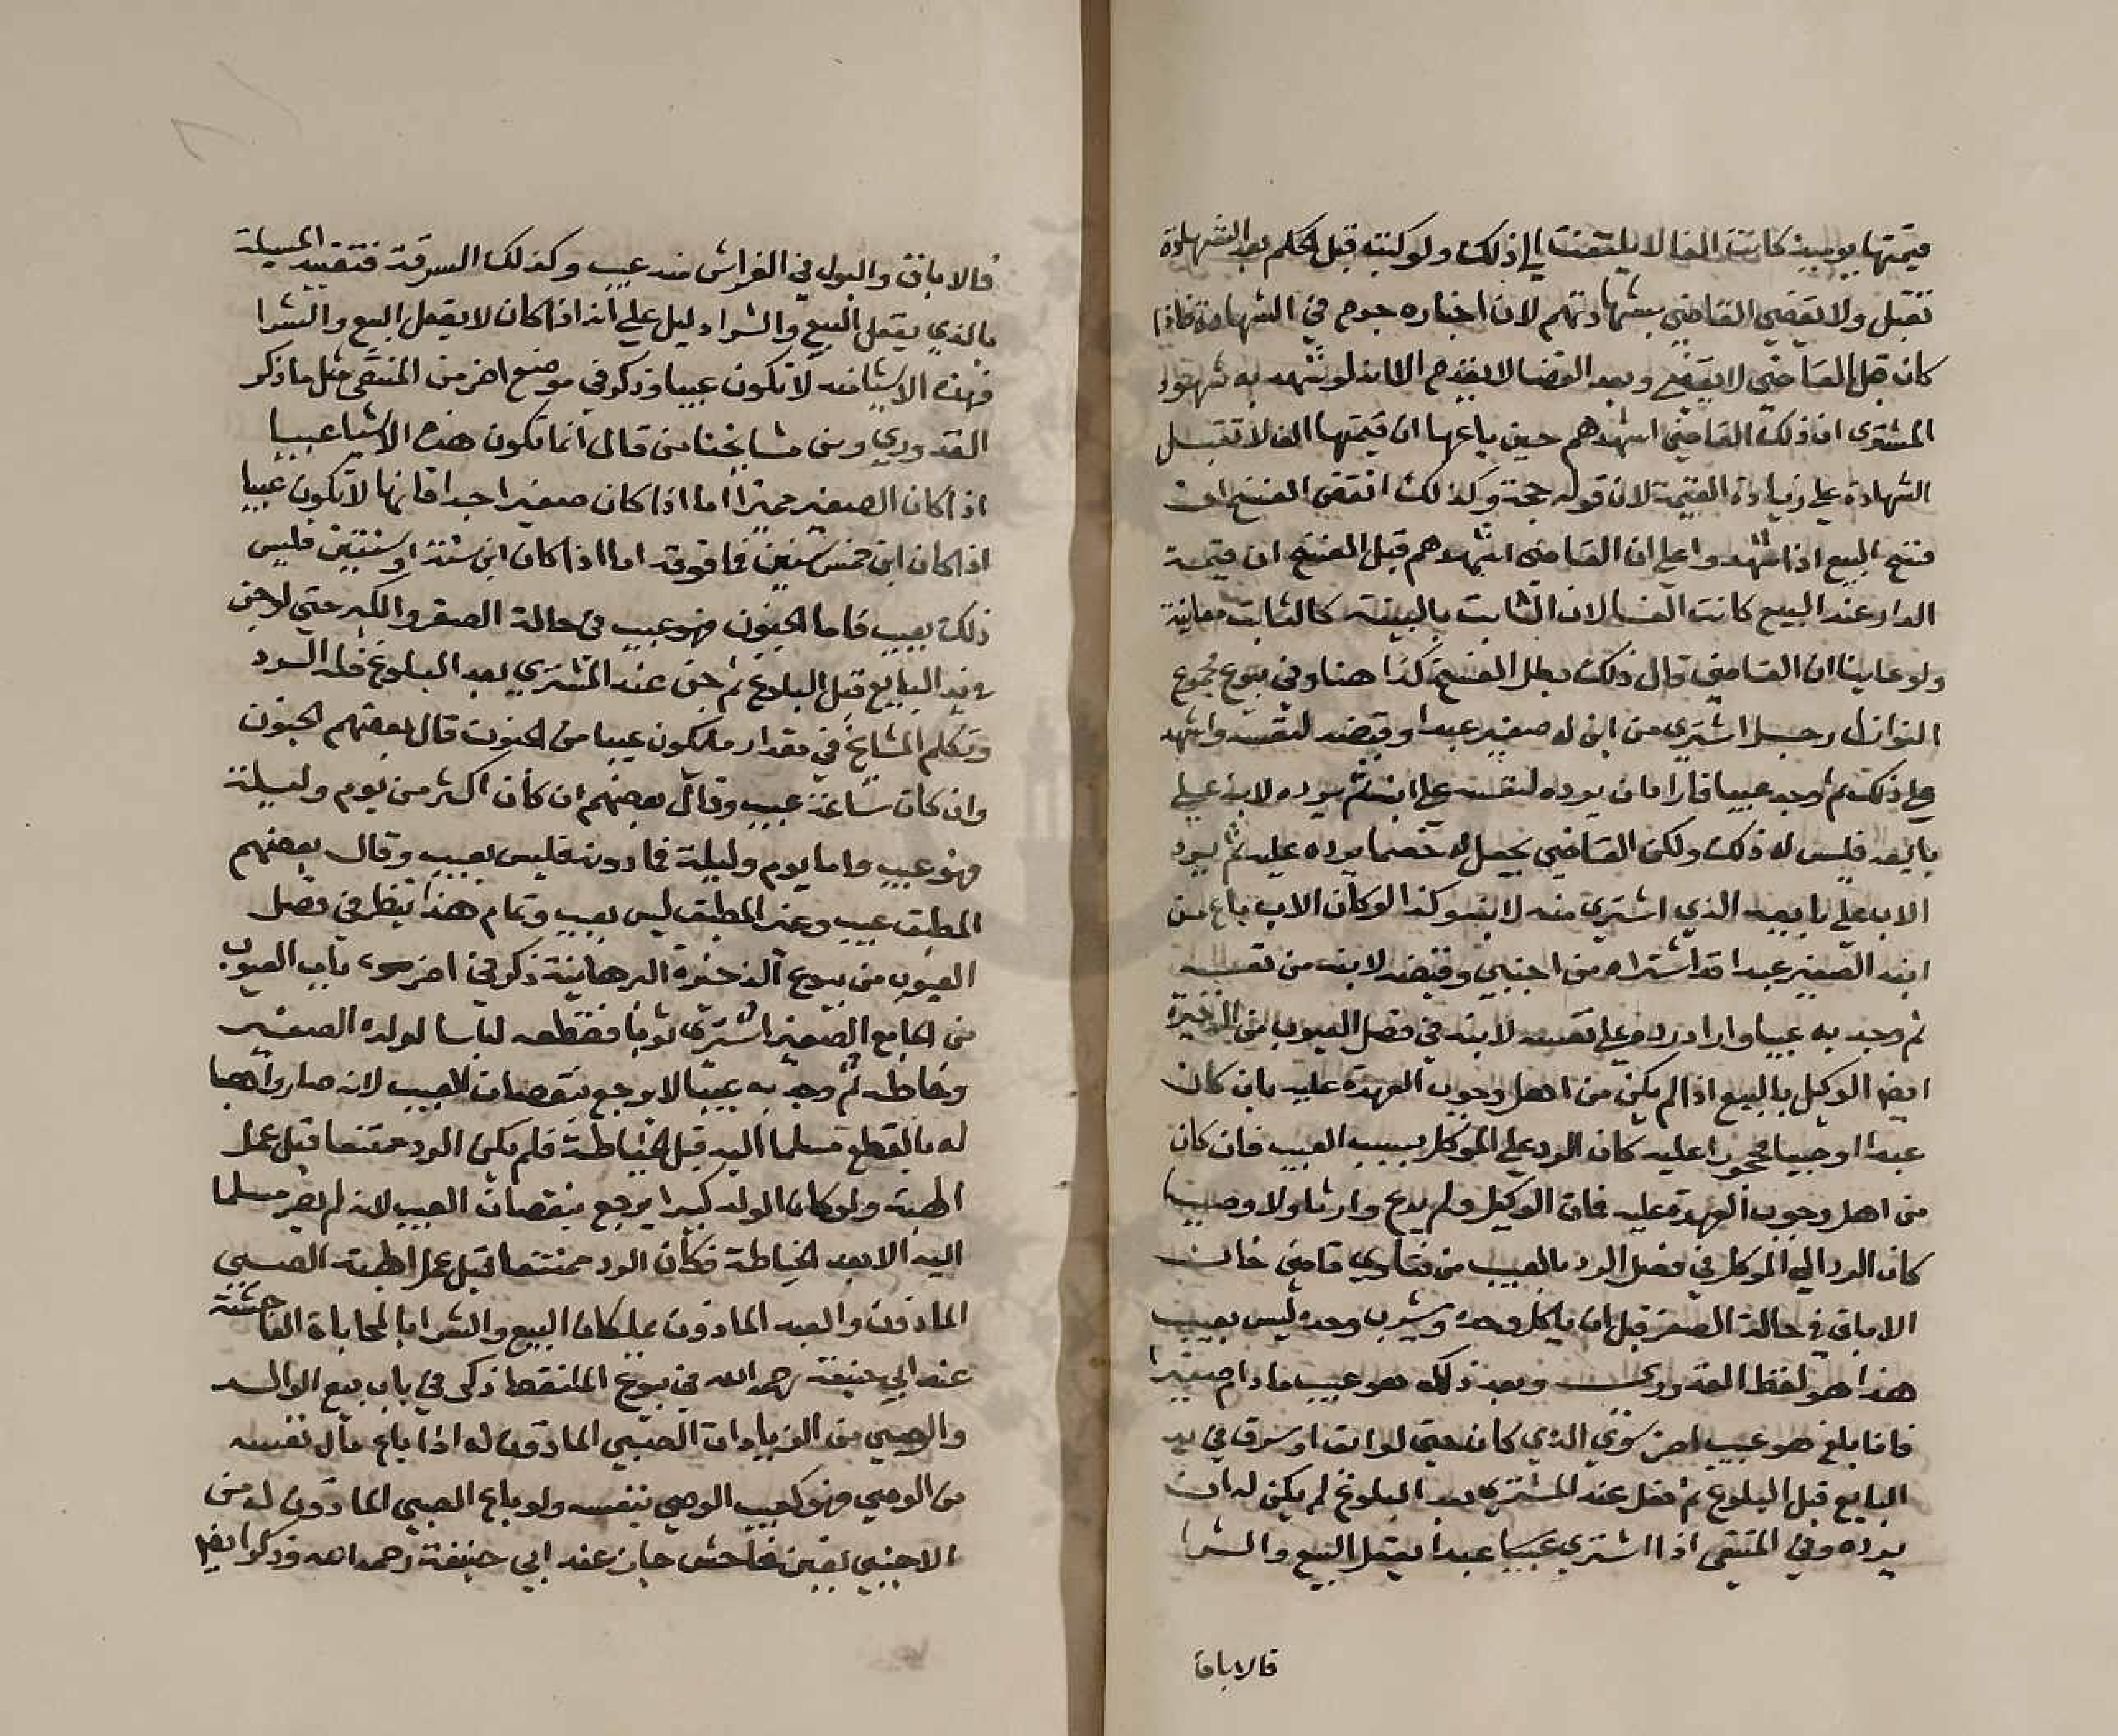 قيمتها يوميذ كانت الفا لا يلتفت الي ذلك ولو كتبه قبل الحكم بعد الشهادة
تقبل ولا يقضي القاضي بشهادتهم لان اخباره جرح في الشهادة فاذا
كان قبل القاضي لا يقضي وبعد القضا لا يقدح الا انه لو شهد به شهود
المشتري ان ذلك القاضي اشهدهم حين باعها ان قيمتها الف لا تقبل
الشهادة علي زيادة القيمة لان قوله حجة وكذلك انتقض الفسخ ان
فسخ البيع اذا شهدوا علي ان القاضي اشهدهم قبل الفسخ ان قيمة
الدار عند البيع كانت الفا لان الثابت بالبينة كالثابت معاينة
ولو عاينا ان القاضي قال ذلك بطل الفسخ كذا هنا وفي بيوع مجموع
النوازل رجل اشتري من ابن له صغير عبدا وقبضه لنفسه واشهد
علي ذلك ثم وجد عيبا فاراد ان يرده لنفسه علي ابنه ثم يرده لابنه علي
بايعه فليس له ذلك ولكن القاضي يجعل له خصما يرده عليه ثم يرد
الاب علي بايعه الذي اشتري منه لابنه وكذا لو كان الاب باع من
ابنه الصغير عبدا قد اشتراه من اجنبي وقبضه لابنه من نفسه
ثم وجد به عيبا واراد رده علي نفسه لابنه في فصل العيوب من الذخيرة
ايضا الوكيل بالبيع اذا لم يكن من اهل وجوب العهدة عليه بان كان
عبدا او صبيا محجورا عليه كان الرد علي الموكل بسبب العيب فان كان
من اهل وجوب العهدة عليه فمات الوكيل ولم يدع وارثا ولا وصيا
كان الرد الي الموكل في فصل الرد بالعيب من فتاوي قاضي خان
الاباق في حالة الصغر قبل ان ياكل وحده ويشرب وحده ليس بعيب
هذا هو لفظ القدوري وبعد ذلك هو عيب ما دام صغيرا
فاذا بلغ هو عيب اخر سوي الذي كان حتي لو ابق او سرق في يد
البايع قبل البلوغ ثم فعل عند المشتري بعد البلوغ لم يكن له ان
يرده وفي المنتقي اذا اشتري عبدا يعقل البيع والشرا
فالاباق
فالاباق والبول في الفراش منه عيب وكذلك السرقة فتقييد المسيلة
بالذي يعقل البيع والشرا دليل علي انه اذا كان لا يعقل البيع والشرا
فهذه الاشيا منه لا تكون عيبا وذكر في موضع اخر من المنتقي مثل ما ذكر
القدوري ومن مشايخنا من قال انما تكون هذه الاشيا عيبا
اذا كان الصغير مميزا اما اذا كان صغيرا جدا فانها لا تكون عيبا
اذا كان ابن خمس سنين فما فوقه اما اذا كان ابن سنة او سنتين فليس
ذلك بعيب فاما الجنون فهو عيب في حالة الصغر والكبر حتي لو جن
في يد البايع قبل البلوغ ثم جن عند المشتري بعد البلوغ فله الرد
وتكلم المشايخ في مقدار ما يكون عيبا من الجنون قال بعضهم الجنون
وان كان ساعة عيب وقال بعضهم ان كان اكثر من يوم وليلة
فهو عيب واما يوم وليلة فما دونه فليس بعيب وقال بعضهم
المطبق عيب وغير المطبق ليس بعيب وتمام هذا ينظر في فصل
العيوب من بيوع الذخيرة البرهانية ذكر في اخر باب العيوب
من الجامع الصغير اشتري ثوبا فقطعه لباسا لولده الصغير
وخاطه ثم وجد به عيبا لا يرجع بنقصان العيب لانه صار واهبا
له بالقطع مسلما اليه قبل الخياطة فلم يكن الرد ممتنعا قبل عمل
الهبة ولو كان الولد كبيرا يرجع بنقصان العيب لانه لم يصر مسلما
اليه الا بعد الخياطة فكان الرد ممتنعا قبل عمل الهبة الصبي
الماذون والعبد الماذون يملكان البيع والشرا بالمحاباة الفاحشة
عند ابي حنيفة رحمه الله في بيوع الملتقط ذكر في باب بيع الوالد
والوصي من الزيادات الصبي الماذون له اذا باع مال نفسه
من الوصي فهو كبيع الوصي بنفسه ولو باع الصبي الماذون له من
الاجنبي بغبن فاحش جاز عند ابي حنيفة رحمه الله وذكر ايضا